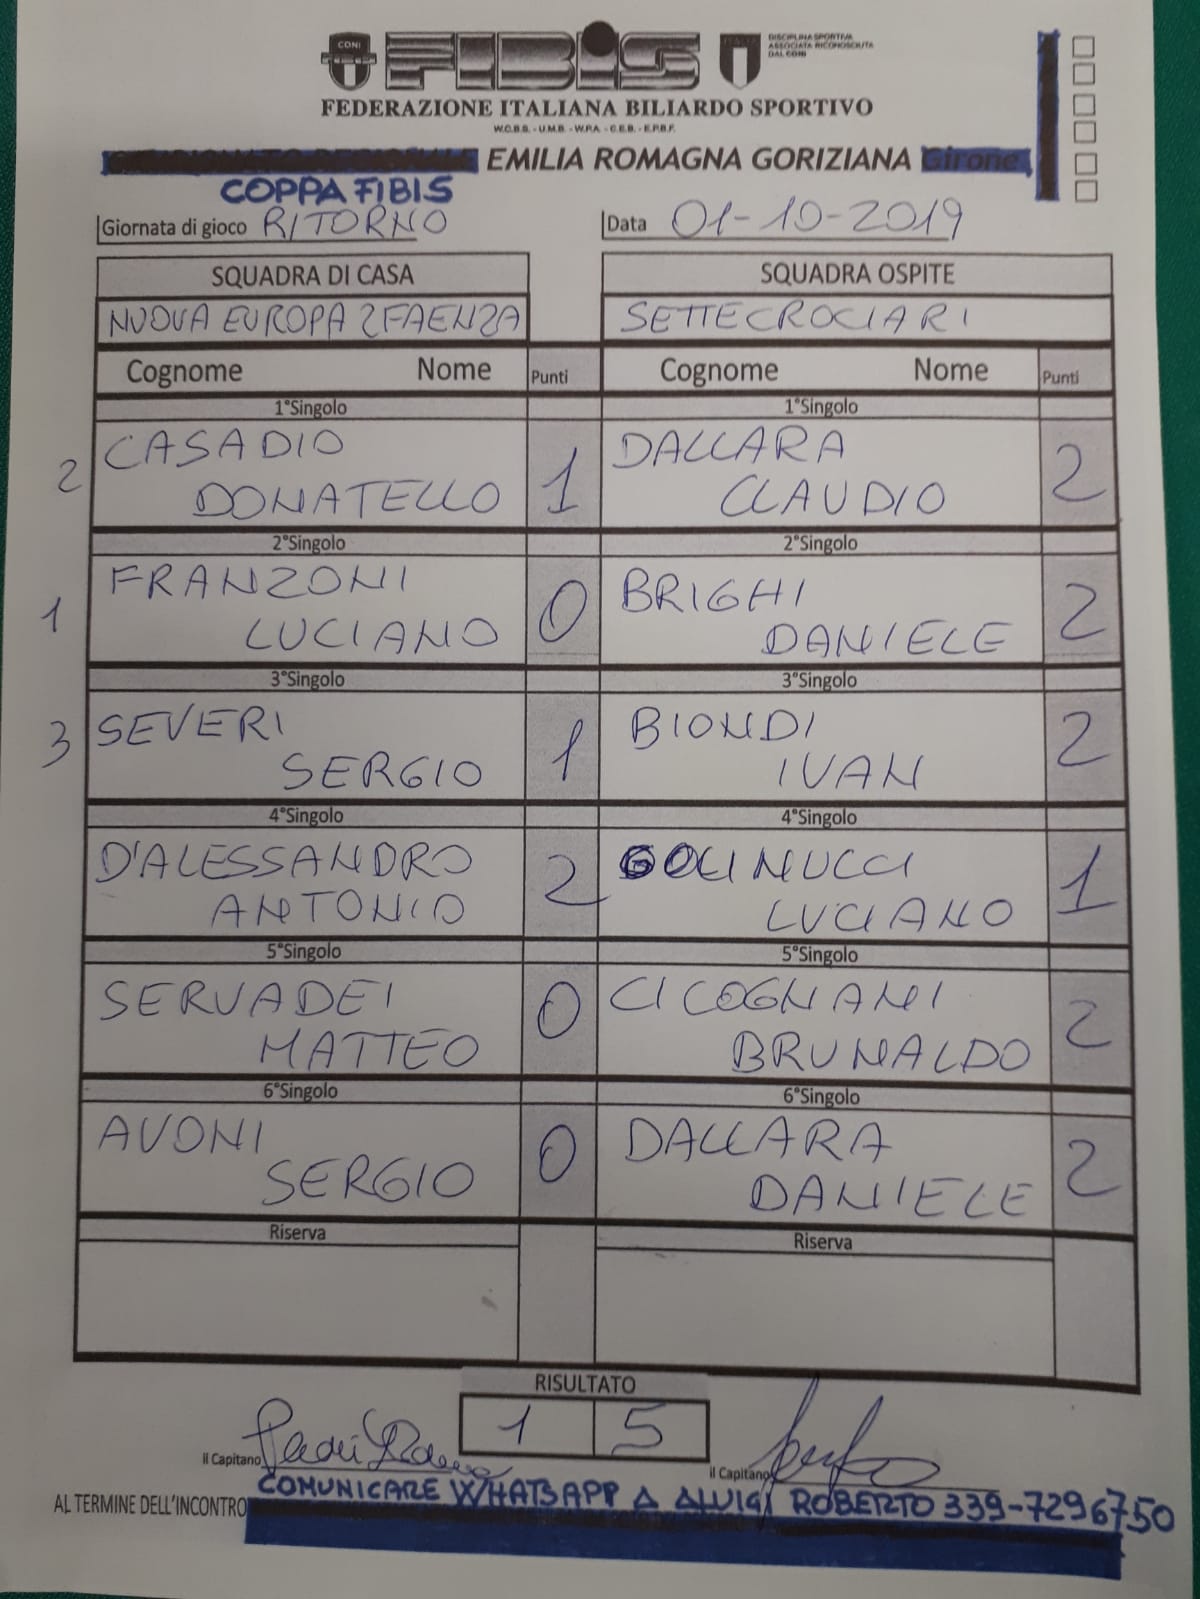 CONI
FIBIS
ITALIA
DISCIPLINA SPORTIVA
ASSOCIATA RICONOSCIUTA
DAL CONI
FEDERAZIONE ITALIANA BILIARDO SPORTIVO
W.C.B.S. - U.M.B. - W.P.A. - C.E.B. - E.P.B.F.
EMILIA ROMAGNA GORIZIANA Girone
COPPA FIBIS
Giornata di gioco RITORNO Data 01-10-2019
SQUADRA DI CASA SQUADRA OSPITE
NUOVA EUROPA 2 FAENZA SETTECROCIARI
Cognome Nome Punti Cognome Nome Punti
1°Singolo 1°Singolo
2 CASADIO DONATELLO 1 DALLARA CLAUDIO 2
2°Singolo 2°Singolo
1 FRANZONI LUCIANO 0 BRIGHI DANIELE 2
3°Singolo 3°Singolo
3 SEVERI SERGIO 1 BIONDI IVAN 2
4°Singolo 4°Singolo
D'ALESSANDRO ANTONIO 2 GOLINUCCI LUCIANO 1
5°Singolo 5°Singolo
SERVADEI MATTEO 0 CICOGNANI BRUNALDO 2
6°Singolo 6°Singolo
AVONI SERGIO 0 DALLARA DANIELE 2
Riserva Riserva
RISULTATO
1 5
il Capitano il Capitano
COMUNICARE WHATSAPP A ALUIGI ROBERTO 339-7296750
AL TERMINE DELL'INCONTRO